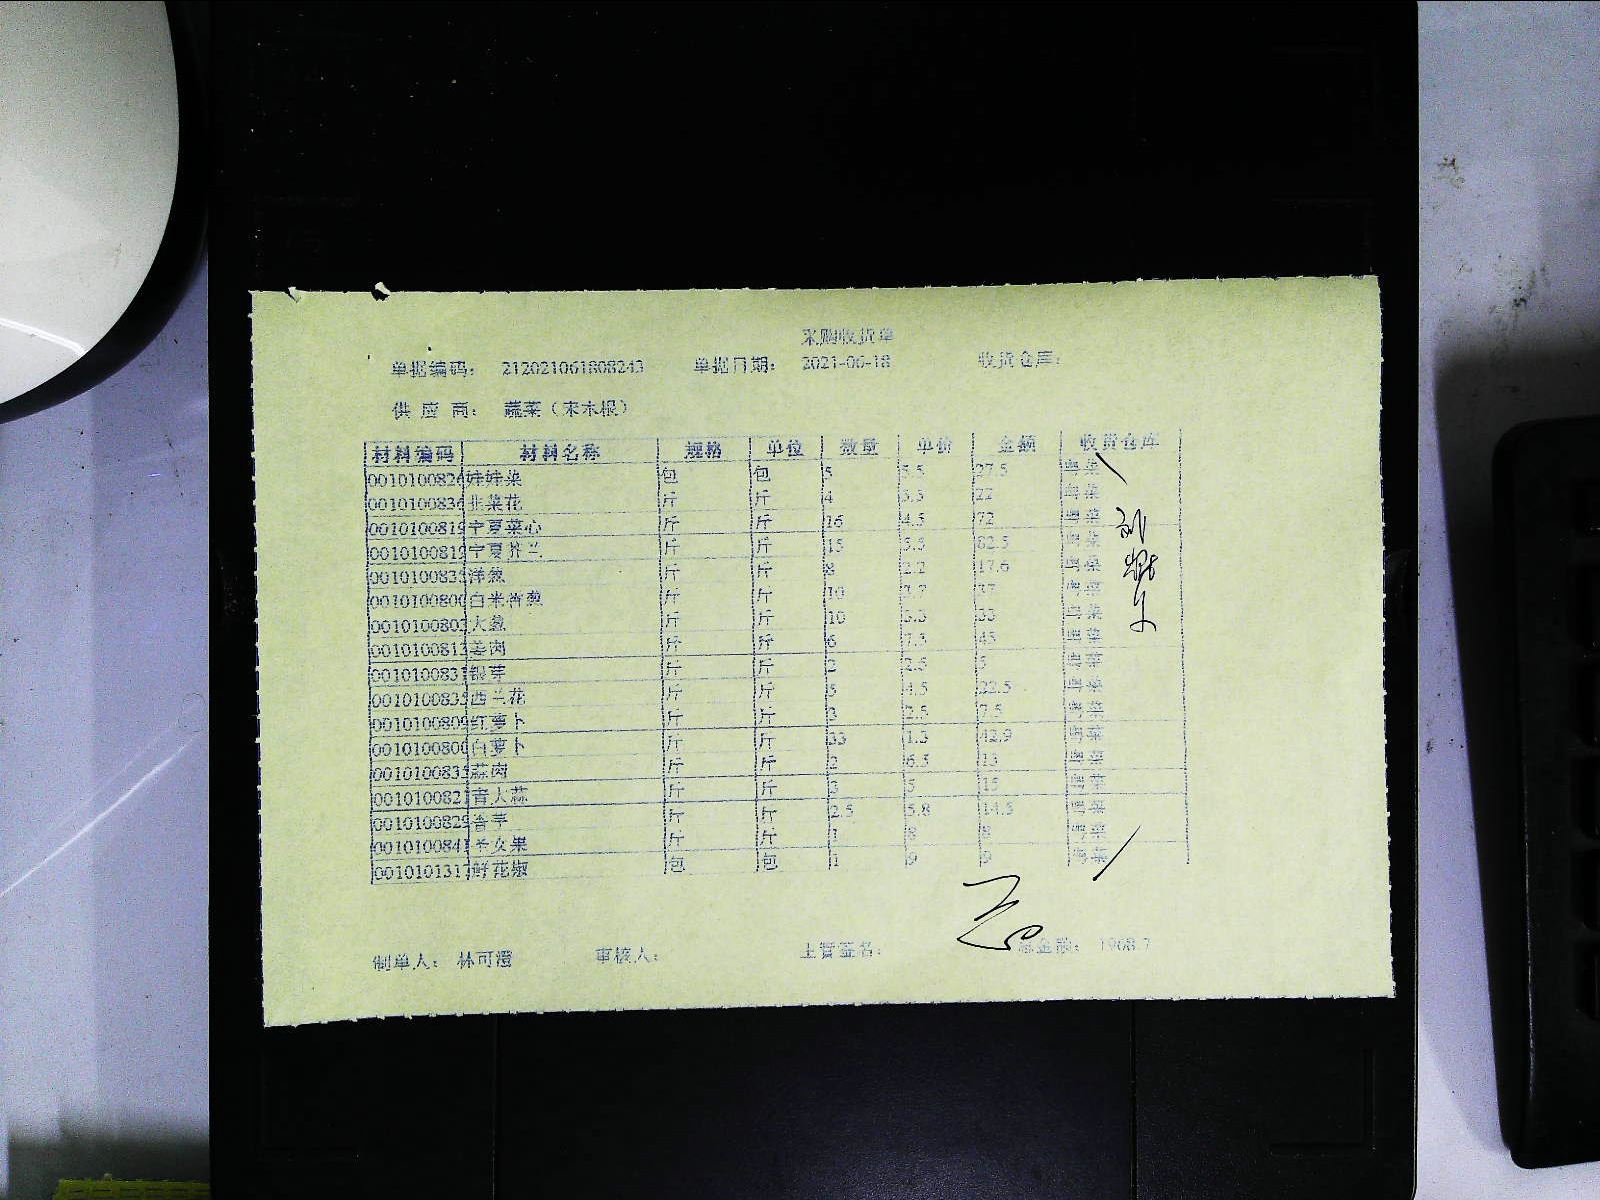 采购收货单
单据编码： 212021061808243 单据日期： 2021-06-18 收货仓库：
供 应 商： 蔬菜（宋木根）
材料编码 材料名称 规格 单位 数量 单价 金额 收货仓库
0010100826 娃娃菜 包 包 5 5.5 27.5 粤菜
0010100836 韭菜花 斤 斤 4 5.5 22 粤菜
0010100819 宁夏菜心 斤 斤 16 4.5 72 粤菜
0010100819 宁夏芥兰 斤 斤 15 5.5 82.5 粤菜
0010100835 洋葱 斤 斤 8 2.2 17.6 粤菜
0010100800 白米香葱 斤 斤 10 3.7 37 粤菜
0010100803 大葱 斤 斤 10 3.3 33 粤菜
0010100813 姜肉 斤 斤 6 7.5 45 粤菜
0010100831 银芽 斤 斤 2 2.5 5 粤菜
0010100835 西兰花 斤 斤 5 4.5 22.5 粤菜
0010100809 红萝卜 斤 斤 3 2.5 7.5 粤菜
0010100800 白萝卜 斤 斤 33 1.3 42.9 粤菜
0010100835 蒜肉 斤 斤 2 6.5 13 粤菜
0010100821 青大蒜 斤 斤 3 5 15 粤菜
0010100829 香芋 斤 斤 2.5 5.8 14.5 粤菜
0010100841 圣女果 斤 斤 1 8 8 粤菜
0010101317 鲜花椒 包 包 1 9 9 粤菜
制单人： 林可澄 审核人： 主管签名： 总金额： 1908.7